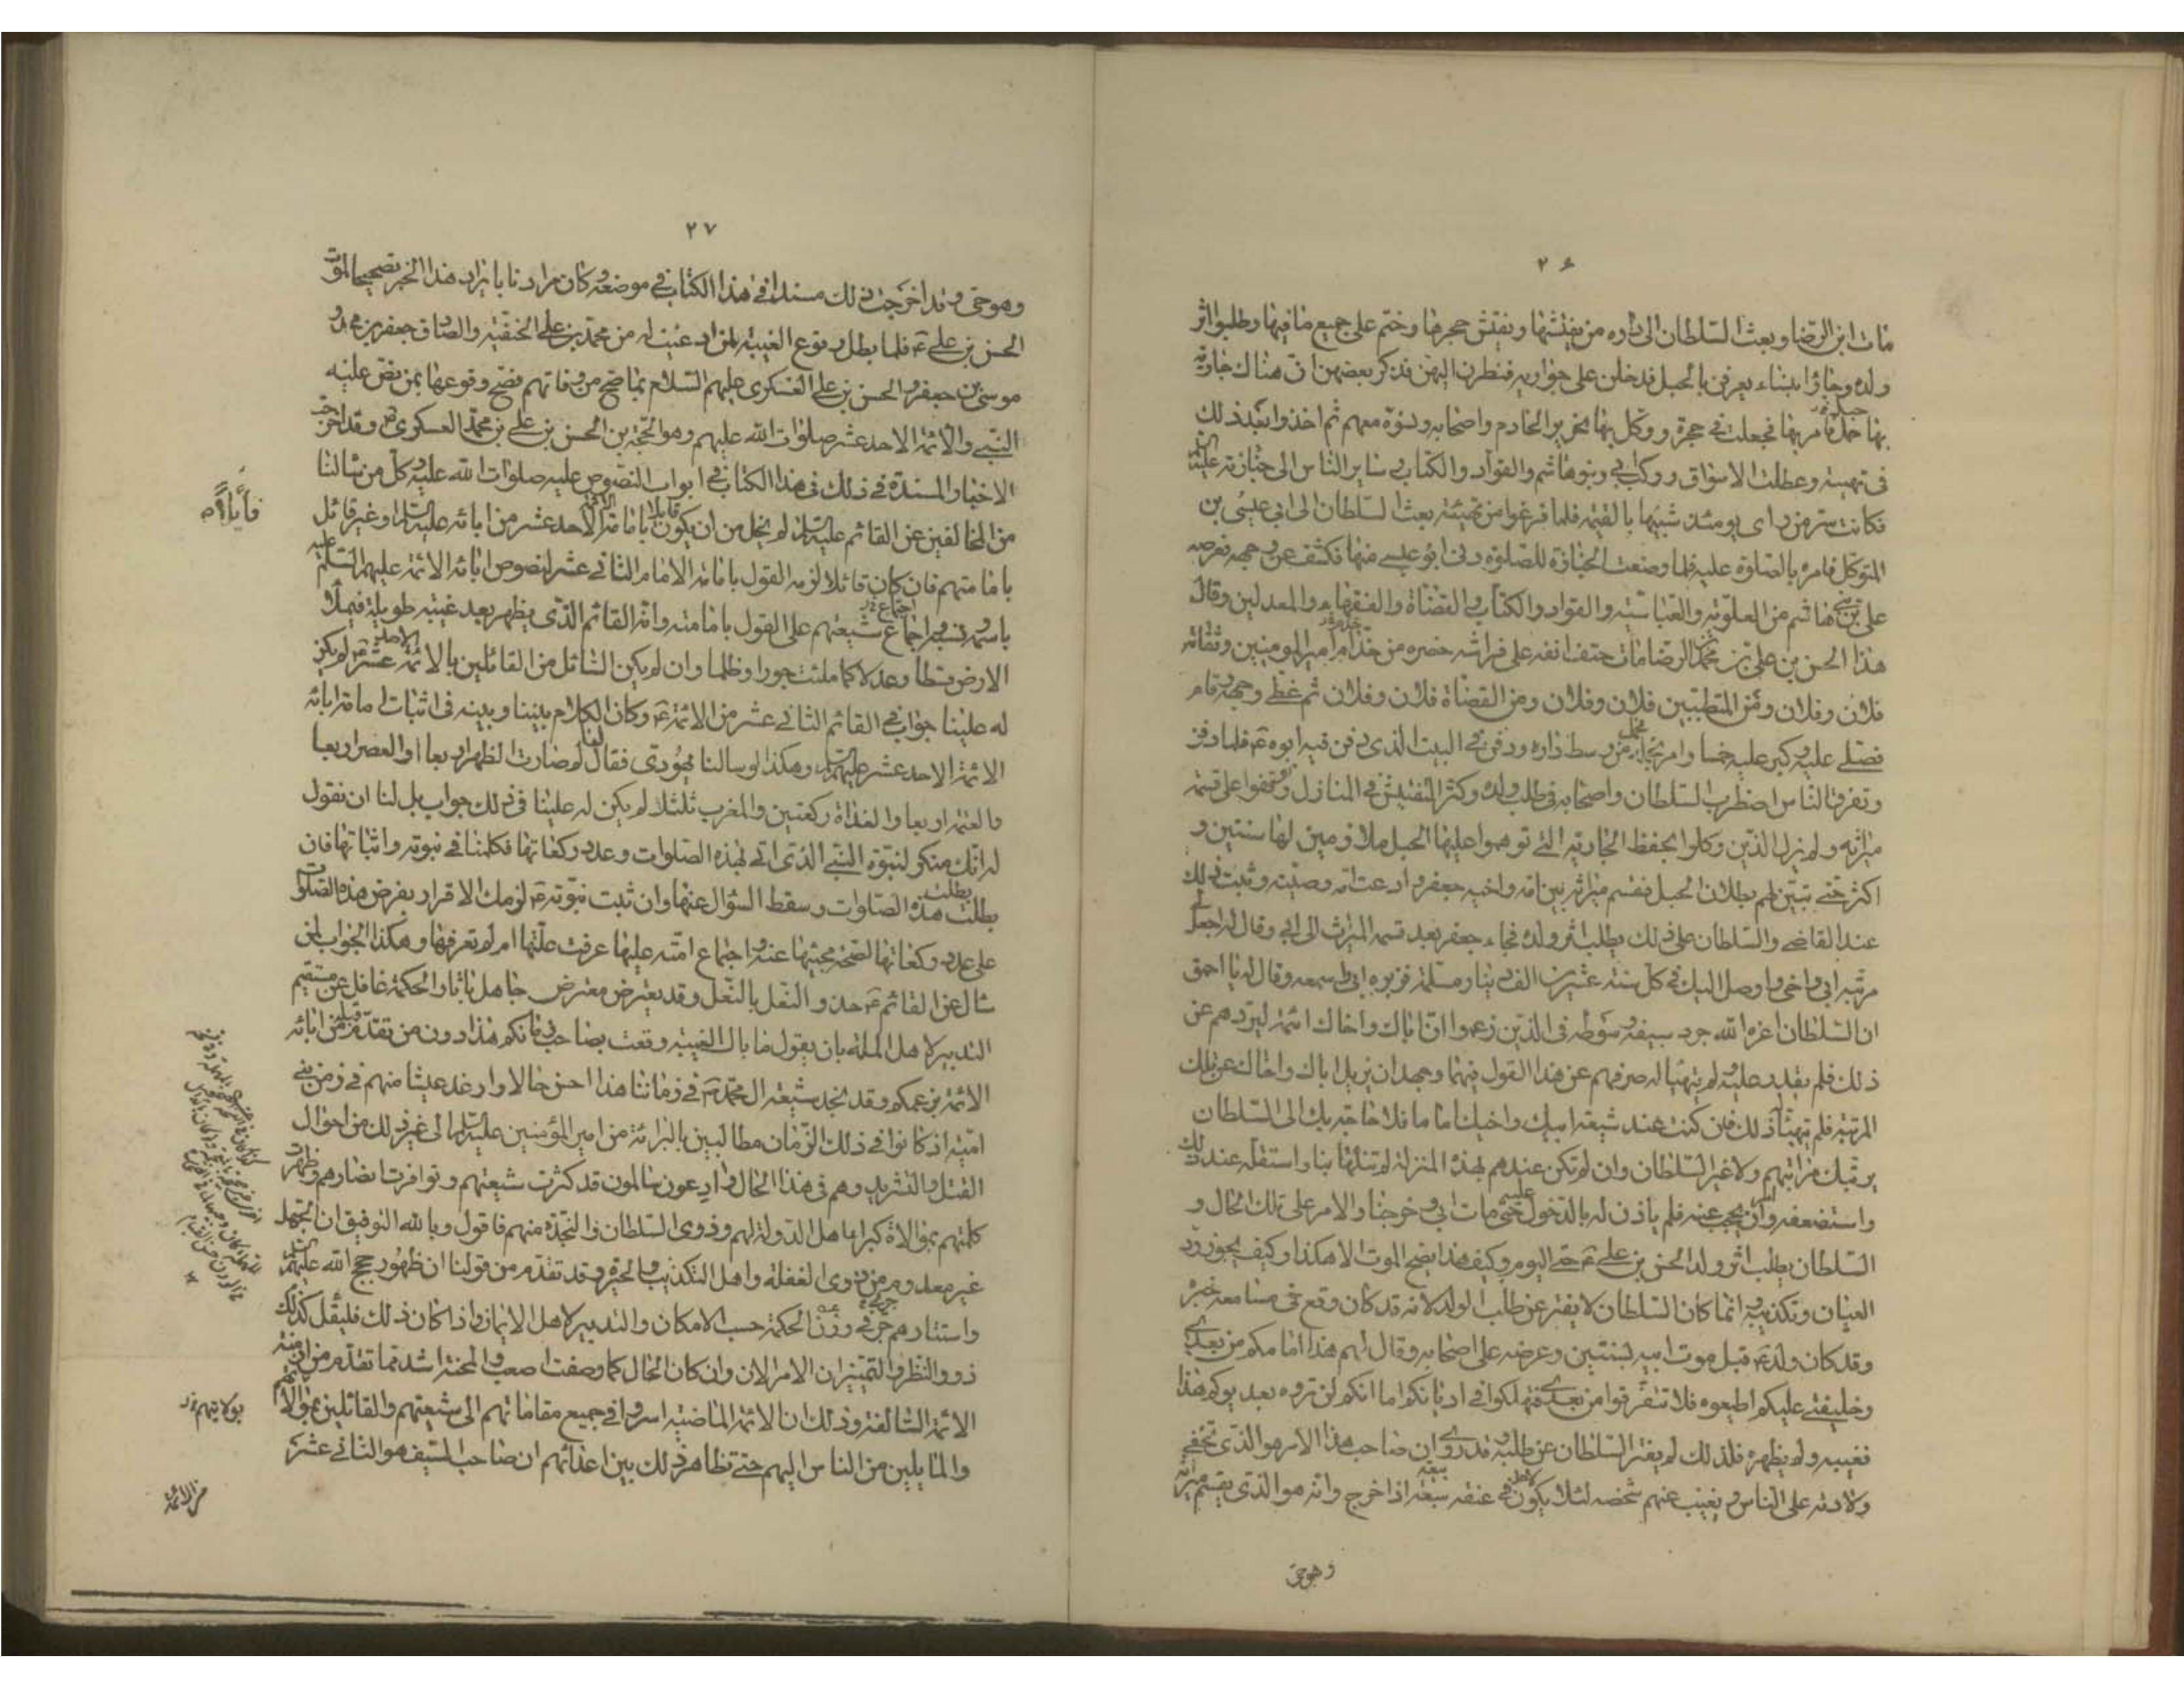 ٢۶
مات ابن الرضا وبعث السلطان الى داره من يفتشها ويفتش حجرها وختم على جميع ما فيها وطلبوا اثر
ولده وجاؤا بنساء يعرفن بالحبل فدخلن على جواريه فنظرن اليهن فذكر بعضهن ان هناك جارية
بها حمل فامر بها فجعلت في حجرة ووكل بها نحرير الخادم واصحابه ونسوة معهم ثم اخذوا بعد ذلك
في تهيئته وعطلت الاسواق وركب ابي وبنو هاشم والقواد والكتاب وساير الناس الى جنازته عليه السلام
فكانت سر من راى يومئذ شبيها بالقيمة فلما فرغوا من تهيئته بعث السلطان الى ابي عيسى بن
المتوكل فامره بالصلوة عليه فلما وضعت الجنازة للصلوة دنى ابو عيسى منها فكشف عن وجهه فعرضه
على بني هاشم من العلوية والعباسية والقواد والكتاب والقضاة والفقهاء والمعدلين وقال
هذا الحسن بن علي بن محمد بن الرضا مات حتف انفه على فراشه حضره من خدام امير المومنين وثقاته
فلان وفلان ومن المتطببين فلان وفلان ومن القضاة فلان وفلان ثم غطى وجهه وقام
فصلى عليه وكبر عليه خمسا وامر بحمله من وسط داره ودفن في البيت الذي دفن فيه ابوه ع فلما دفن
وتفرق الناس اضطرب السلطان واصحابه في طلب ولده وكثر التفتيش في المنازل وتوقفوا على قسمة
ميراثه ولم يزل الذين وكلوا بحفظ الجارية التي توهموا عليها الحبل ملازمين لها سنتين و
اكثر حتى تبين لهم بطلان الحبل فقسم ميراثه بين امه واخيه جعفر وادعت امه وصيته وثبت ذلك
عند القاضي والسلطان على ذلك يطلب اثر ولده فجاء جعفر بعد قسمة الميراث الى ابي وقال له اجعل لي
مرتبة ابي واخي واوصل اليك في كل سنة عشرين الف دينار مسلمة فزبره ابي واسمعه وقال له يا احمق
ان السلطان اعزه الله جرد سيفه وسوطه في الذين زعموا ان اباك واخاك ائمة ليردهم عن
ذلك فلم يقدر عليه ولم يتهيا له صرفهم عن هذا القول فيهما وجهد ان يزيل اباك واخاك عن تلك
المرتبة فلم يتهيأ ذلك فان كنت عند شيعة ابيك واخيك اماما فلا حاجة بك الى السلطان
يرتبك مراتبهم ولا غير السلطان وان لم تكن عندهم بهذه المنزلة لم تنلها بنا واستقله عند ذلك
واستضعفه وامر ان يحجب عنه فلم ياذن له بالدخول عليه حتى مات ابي وخرجنا والامر على تلك الحال و
السلطان يطلب اثر ولد الحسن بن علي ع حتى اليوم وكيف هذا يصح الموت الا هكذا وكيف يجوز رد
العيان وتكذيبه انما كان السلطان لا يفتر عن طلب الولد لانه قد كان وقع في مسامعه خبره
وقد كان ولد ع قبل موت ابيه بسنتين وعرضه على اصحابه وقال لهم هذا امامكم من بعدي
وخليفتي عليكم اطيعوه فلا تتفرقوا من بعدي فتهلكوا في اديانكم اما انكم لن تروه بعد يومكم هذا
فغيبه ولم يظهره فلذلك لم يفتر السلطان عن طلبه وقد روي ان صاحب هذا الامر هو الذي تخفى
ولادته على الناس ويغيب عنهم شخصه لئلا يكون لاحد في عنقه بيعة اذا خرج وانه هو الذي يقسم ميراثه
وهو حي
٢٧
وهو حي وقد اخرجت ذلك مسندا في هذا الكتاب في موضعه وكان مرادنا بايراد هذا الخبر تصحيحا لموت
الحسن بن علي ع فلما بطل وقوع الغيبة لمن ادعيت له من محمد بن علي الحنفية والصادق جعفر بن محمد و
موسى بن جعفر والحسن بن علي العسكري عليهم السلام بما صح من وفاتهم فصح وقوعها بمن نص عليه
النبي والائمة الاحد عشر صلوات الله عليهم وهو الحجة بن الحسن بن علي بن محمد العسكري ع وقد اخرجت
الاخبار المسندة في ذلك في هذا الكتاب في ابواب النصوص عليه صلوات الله عليه وكل من سالنا
من المخالفين عن القائم عليه السلام لم يخل من ان يكون قايلا بامامة الائمة الاحد عشر من ابائه عليهم السلام او غير قائل
بامامتهم فان كان قائلا لزمه القول بامامة الامام الثاني عشر لنصوص ابائه الائمة عليهم السلم عليه
باسمه ونسبه واجماع شيعتهم على القول بامامته وانه القائم الذي يظهر بعد غيبة طويلة فيملأ
الارض قسطا وعدلا كما ملئت جورا وظلما وان لم يكن السائل من القائلين بالائمة الاحد عشر ع لم يكن
له علينا جواب في القائم الثاني عشر من الائمة ع وكان الكلام بيننا وبينه في اثبات امامة ابائه
الائمة الاحد عشر عليهم السلام وهكذا لو سالنا يهودي فقال لنا لم صارت الظهر اربعا او العصر اربعا
والعتمة اربعا والغداة ركعتين والمغرب ثلثا لم يكن له علينا في ذلك جواب بل لنا ان نقول
له انك منكر لنبوة النبي الذي اتى بهذه الصلوات وعدد ركعاتها فكلمنا في نبوته واثباتها فان
بطلت بطلت هذه الصلوات وسقط السؤال عنها وان ثبت نبوته ع لزمك الاقرار بفرض هذه الصلوات
على عدد ركعاتها لصحة مجيئها عنه واجماع امته عليها عرفت علتها ام لم تعرفها وهكذا الجواب لمن
سال عن القائم ع حذو النعل بالنعل وقد يعترض معترض جاهل باثار الحكمة غافل عن مستقيم
التدبير لاهل الملة بان يقول ما بال الغيبة وقعت بصاحب زمانكم هذا دون من تقدم قبله من ابائه
الائمة بزعمكم وقد نجد شيعة ال محمد ع في زماننا هذا احسن حالا وارغد عيشا منهم في زمن بني
امية اذ كانوا في ذلك الزمان مطالبين بالبرائة من امير المؤمنين عليه السلام الى غير ذلك من احوال
القتل والتشريد وهم في هذا الحال وادعون سالمون قد كثرت شيعتهم وتوافرت انصارهم وظهرت
كلمتهم بموالاة كبراء اهل الدولة لهم وذوي السلطان والنجدة منهم فاقول وبالله التوفيق ان الجهل
غير معدوم من ذوي الغفلة واهل التكذيب والحيرة وقد تقدم من قولنا ان ظهور حجج الله عليهم السلم
واستتارهم جرى في وزن الحكمة حسب الامكان والتدبير لاهل الايمان واذا كان ذلك فليقل كذلك
ذوو النظر والتمييز ان الامر الان وان كان الحال كما وصفت اصعب والمحنة اشد مما تقدم من ازمنة
الائمة السالفة وذلك ان الائمة الماضية اسروا في جميع مقاماتهم الى شيعتهم والقائلين بموالاتهم
والمايلين من الناس اليهم حتى تظاهر ذلك بين اعدائهم ان صاحب السيف هو الثاني عشر
بولايتهم
من الائمة